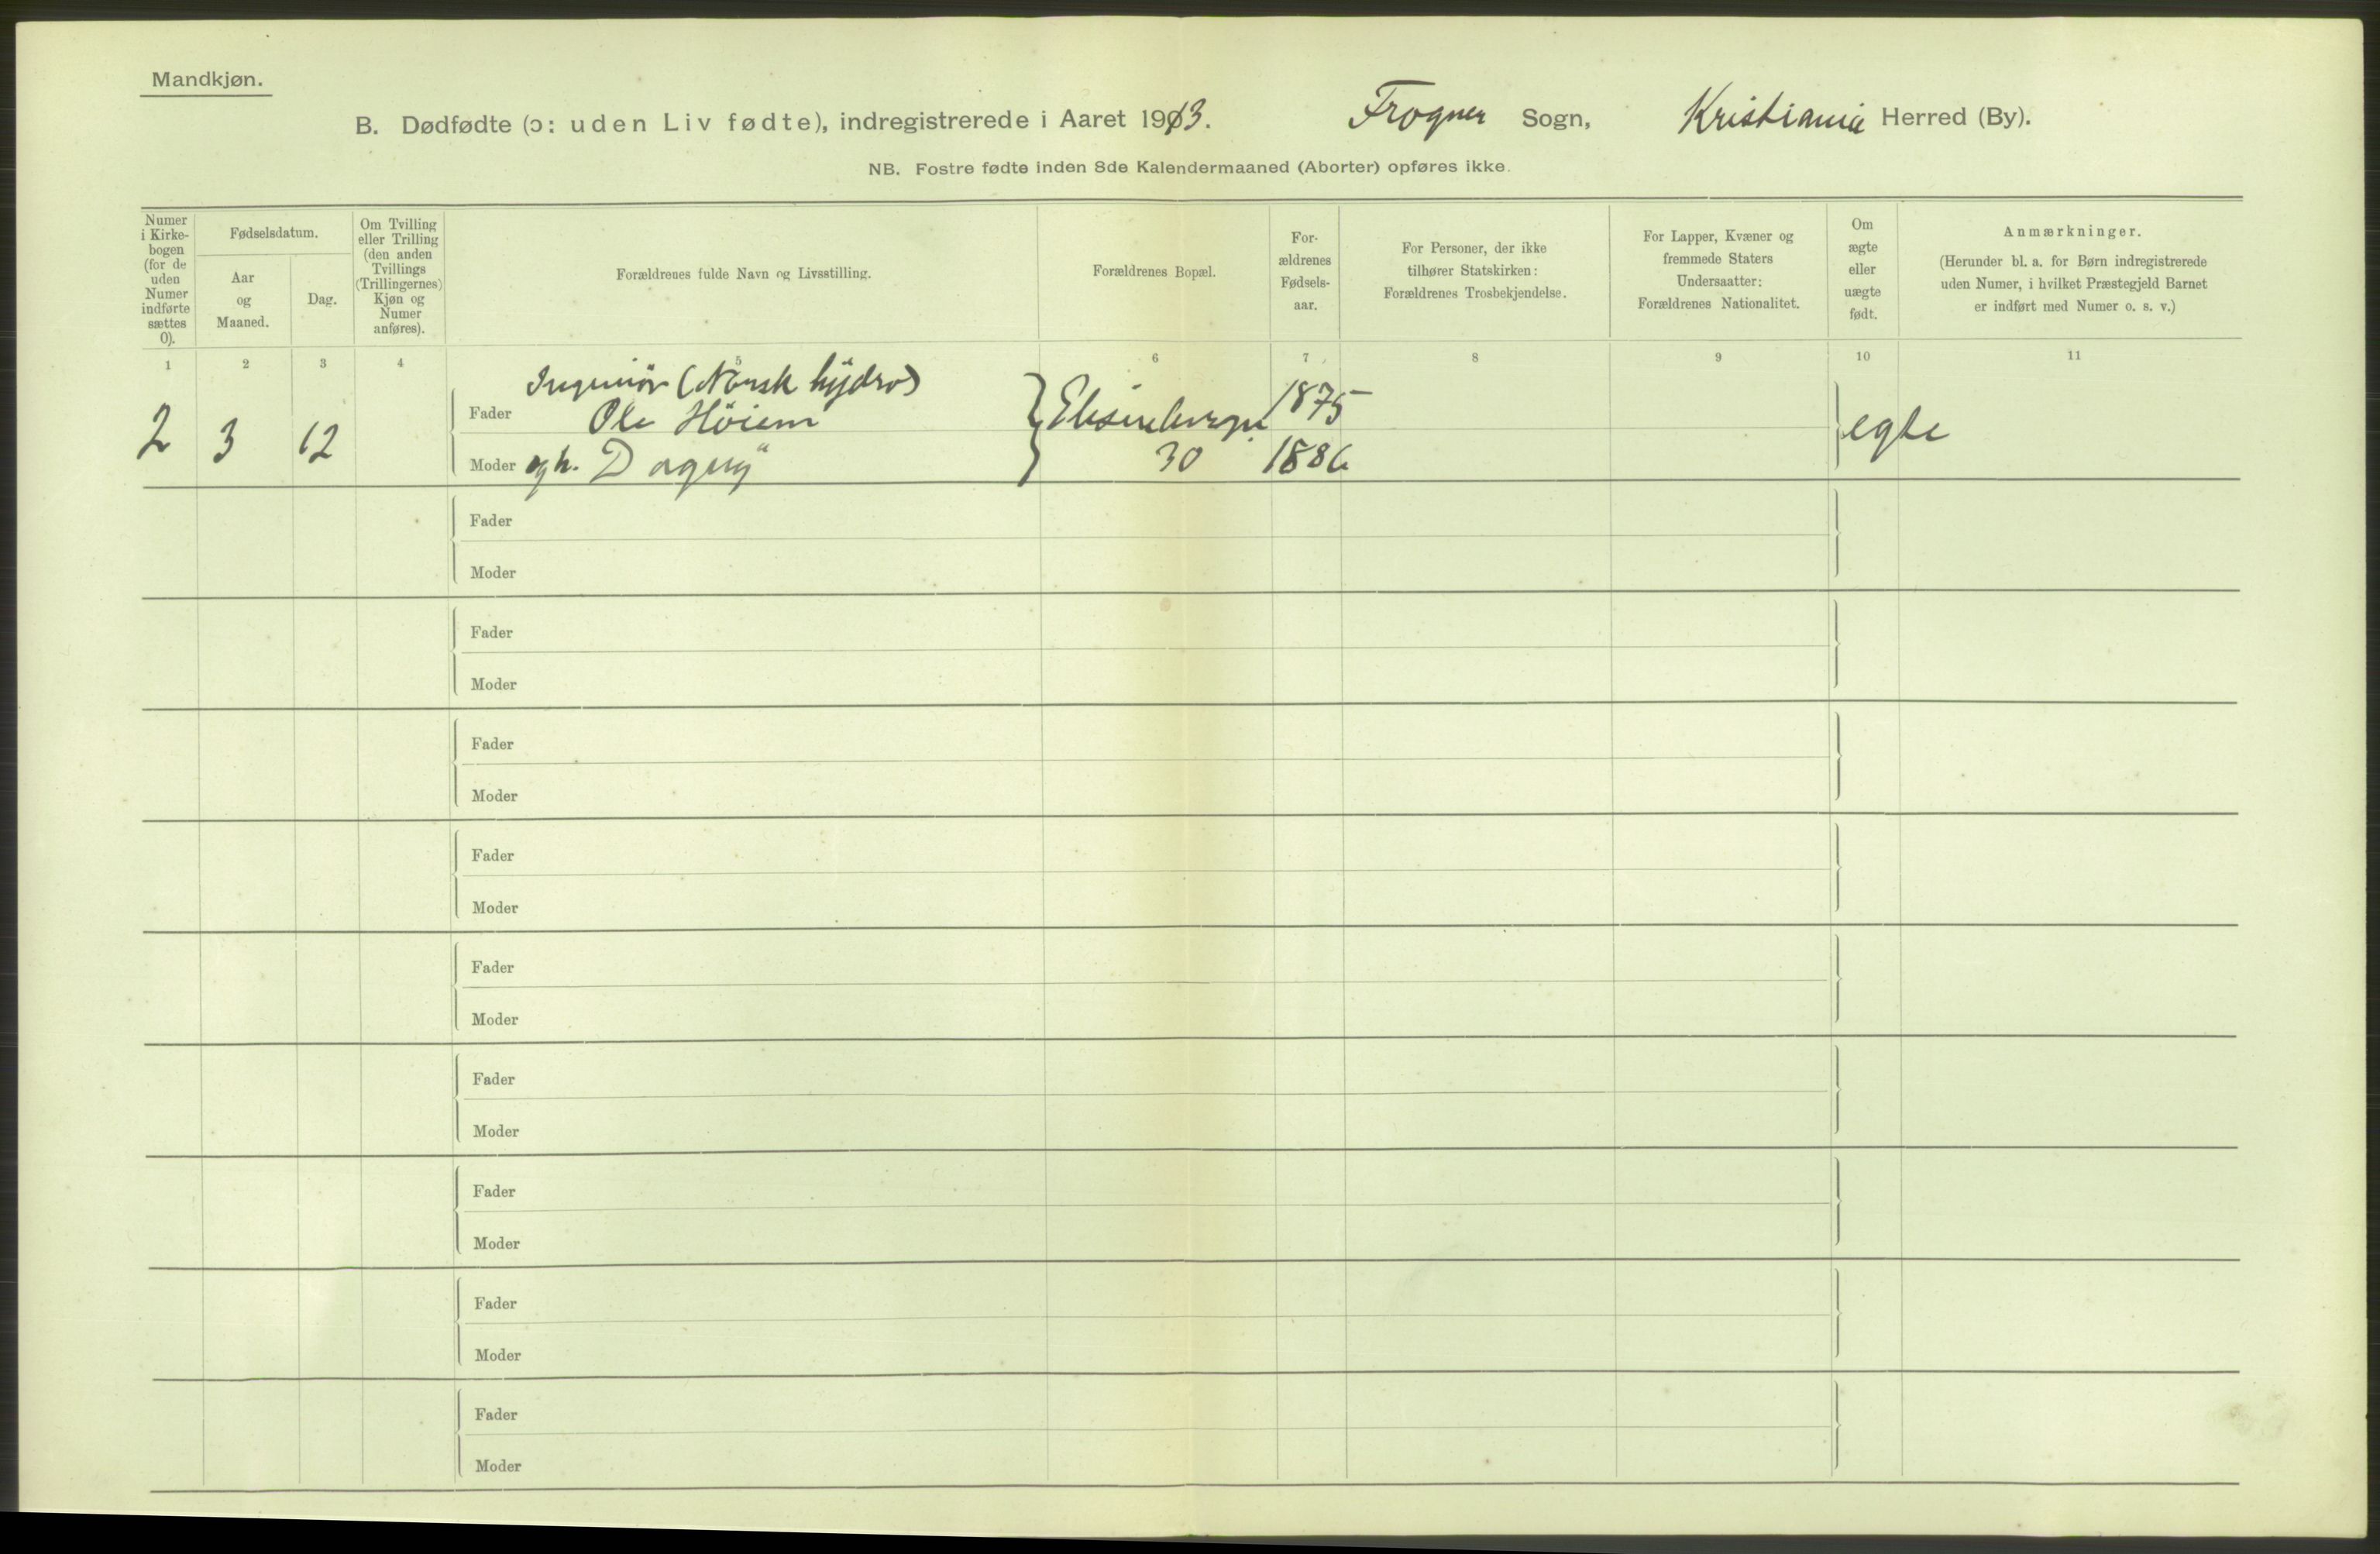 Mandkjøn.
B. Dødfødte (ɔ: uden Liv fødte), indregistrerede i Aaret 1913. Frogner Sogn, Kristiania Herred (By).
NB. Fostre fødte inden 8de Kalendermaaned (Aborter) opføres ikke.
Numer
i Kirke-
bogen
(for de
uden
Numer
indførte
sættes
0).
Fødselsdatum.
Aar
og
Maaned.
Dag.
Om Tvilling
eller Trilling
(den anden
Tvillings
(Trillingernes)
Kjøn og
Numer
anføres).
Forældrenes fulde Navn og Livsstilling.
Forældrenes Bopæl.
For-
ældrenes
Fødsels-
aar.
For Personer, der ikke
tilhører Statskirken:
Forældrenes Trosbekjendelse.
For Lapper, Kvæner og
fremmede Staters
Undersaatter:
Forældrenes Nationalitet.
Om
ægte
eller
uægte
født.
Anmærkninger.
(Herunder bl. a. for Børn indregistrerede
uden Numer, i hvilket Præstegjeld Barnet
er indført med Numer o. s. v.)
1 2 3 4 5 6 7 8 9 10 11
Ingeniør (Norsk hydro)
2 3 12 Fader Ole Höiem 1875 egte
Moder og h. Dagny " 30 1886
Fader
Moder
Fader
Moder
Fader
Moder
Fader
Moder
Fader
Moder
Fader
Moder
Fader
Moder
Fader
Moder
Fader
Moder